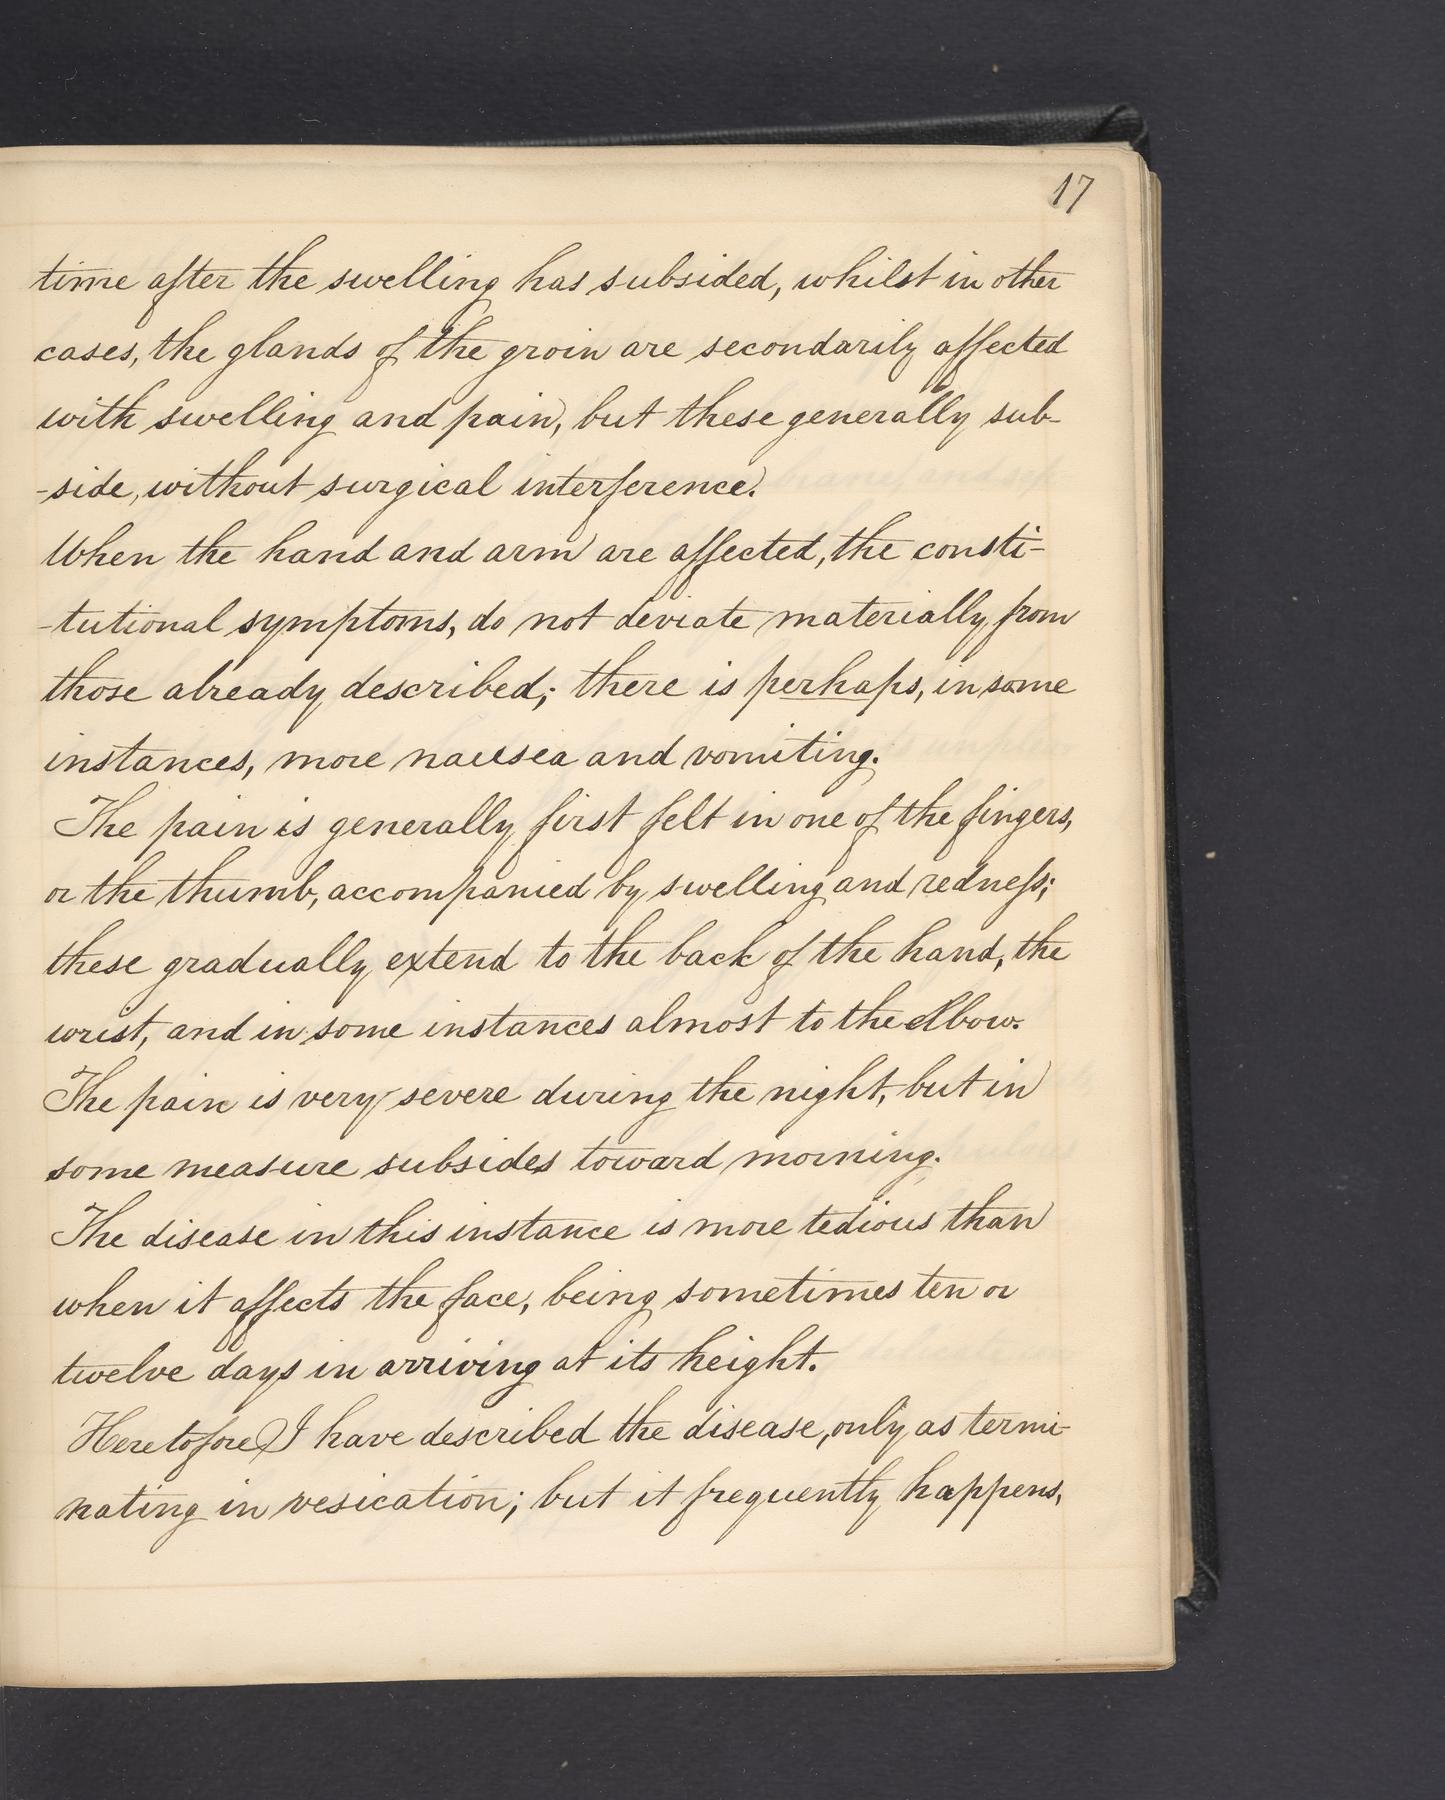 17
time after the swelling has subsided, whilst in other
cases, the glands of the groin are secondarily affected
with swelling and pain, but these generally sub-
-side, without surgical interference.
When the hand and arm are affected, the consti-
-tutional symptoms, do not deviate materially from
those already described; there is perhaps, in some
instances, more nausea and vomiting.
The pain is generally first felt in one of the fingers,
or the thumb, accompanied by swelling and redneſs;
these gradually extend to the back of the hand, the
wrist, and in some instances almost to the elbow.
The pain is very severe during the night, but in
some measure subsides toward morning.
The disease in this instance is more tedious than
when it affects the face, being sometimes ten or
twelve days in arriving at its height.
Heretofore I have described the disease, only as termi-
nating in vesication; but it frequently happens,